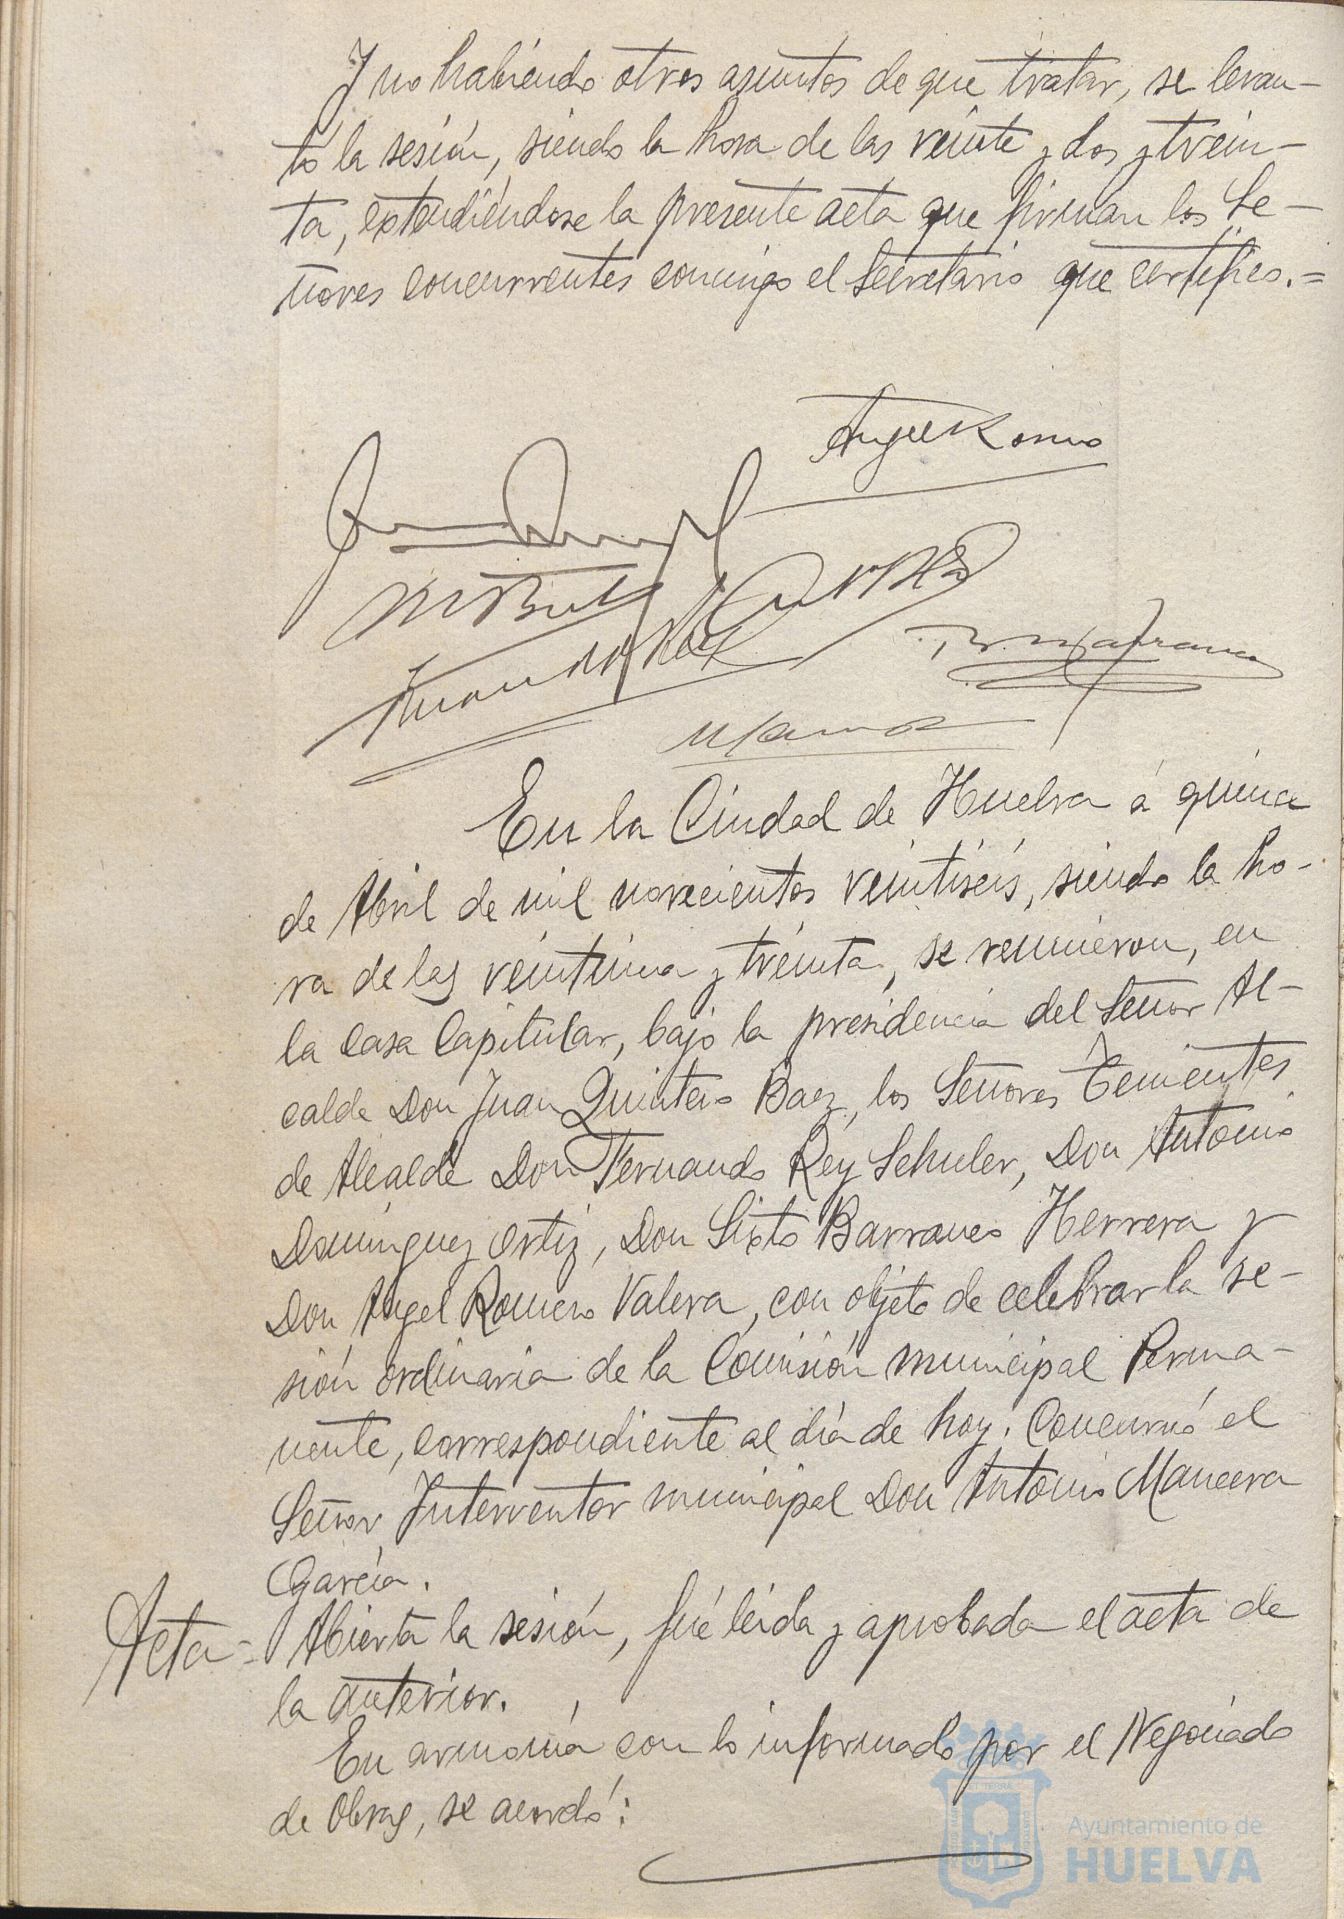 Y no habiendo otros asuntos de que tratar, se levan-
tó la sesión, siendo la hora de las veinte y dos y trein-
ta, extendiéndose la presente acta que firman los Se-
ñores concurrentes conmigo el Secretario que certifico.=
Angel Romero
En la Ciudad de Huelva á quince
de Abril de mil novecientos veintiséis, siendo la ho-
ra de las veintiuna y treinta, se reunieron, en
la Casa Capitular, bajo la presidencia del Señor Al-
calde Don Juan Quintero Baez, los Señores Tenientes
de Alcalde Don Fernando Rey Schuler, Don Antonio
Domínguez Ortiz, Don Sixto Barranco Herrera y
Don Angel Romero Valera, con objeto de celebrar la se-
sión ordinaria de la Comisión municipal Perma-
nente, correspondiente al día de hoy. Concurrió el
Señor Interventor municipal Don Antonio Mancera
García.
Acta= Abierta la sesión, fué leida y aprobada el acta de
la anterior.
En armonía con lo informado por el Negociado
de Obras, se acordó:
Ayuntamiento de
HUELVA